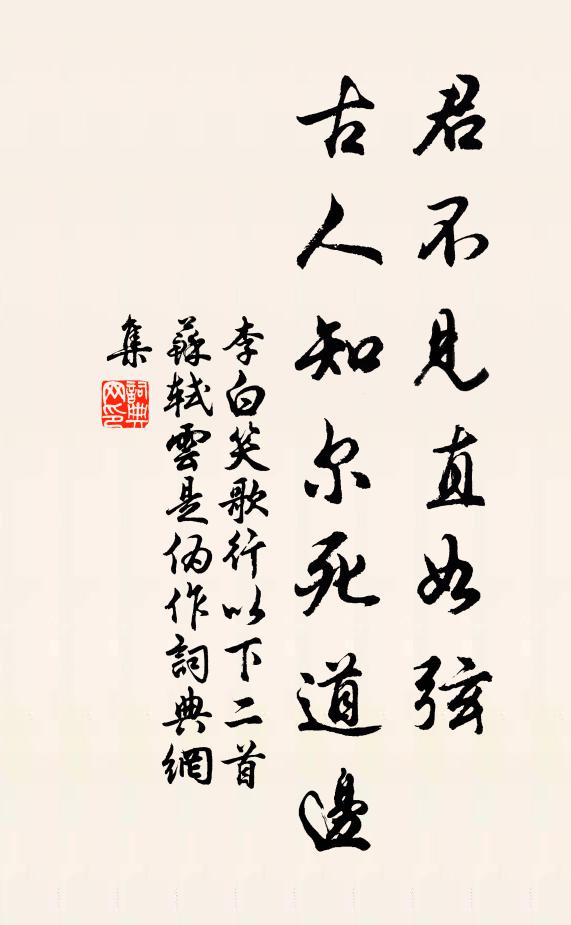 君不見直如弦
古人知尔死道邊
李白笑歌行以下二首
蘇軾雲是偽作詞典網
集
詞典
网印